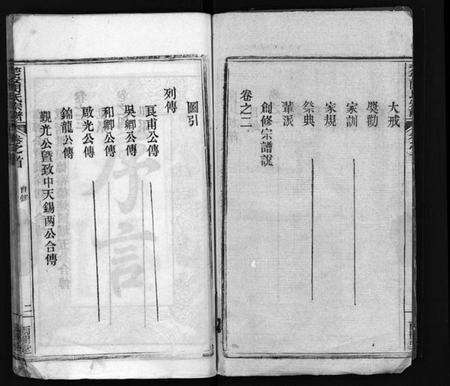 大戒
獎勸
家訓
家規
祭典
輩派
卷之二
創修宗譜諠
圖引
列傳
良甫公傳
吳卿公傳
和卿公傳
啟光公傳
錦龍公傳
觀光公暨致中天錫兩公合傳
卷之首
二
序言